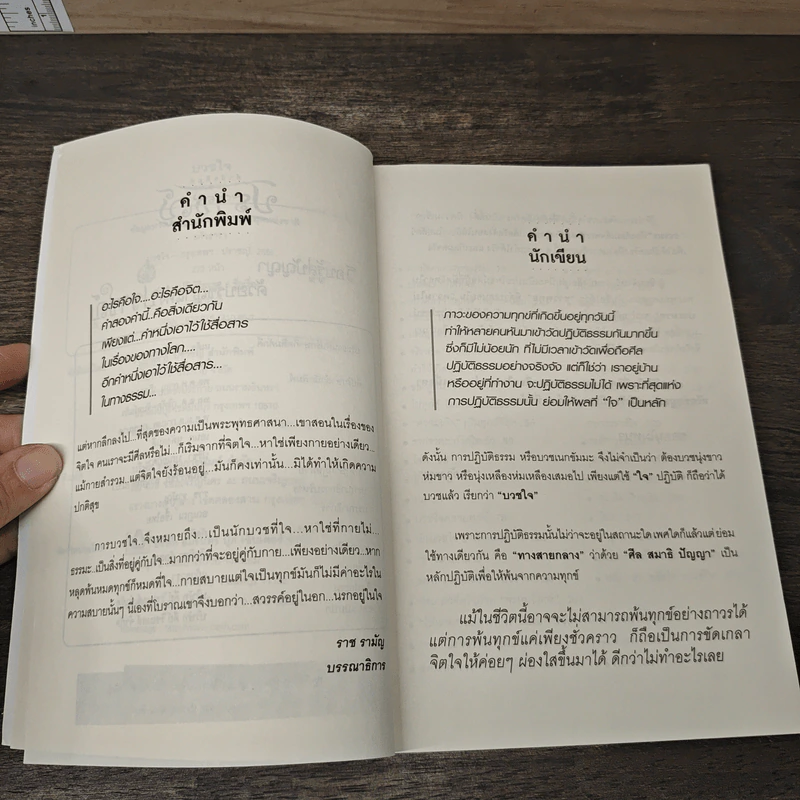 inches
1
คำนำ
สำนักพิมพ์
อะไรคือใจ....อะไรคือจิต...
คำสองคำนี้..คือสิ่งเดียวกัน
เพียงแต่...คำหนึ่งเอาไว้ใช้สื่อสาร
ในเรื่องของทางโลก....
อีกคำหนึ่งเอาไว้ใช้สื่อสาร...
ในทางธรรม...
แต่หากลึกลงไป...ที่สุดของความเป็นพระพุทธศาสนา...เขาสอนในเรื่องของ
จิตใจ คนเราจะมีศีลหรือไม่...ก็เริ่มจากที่จิตใจ...หาใช่เพียงกายอย่างเดียว..
แม้กายสำรวม..แต่จิตใจยังร้อนอยู่...มันก็คงเท่านั้น...มิได้ทำให้เกิดความ
ปกติสุข
การบวชใจ..จึงหมายถึง...เป็นนักบวชที่ใจ...หาใช่ที่กายไม่...
ธรรมะ..เป็นสิ่งที่อยู่คู่กับใจ...มากกว่าที่จะอยู่คู่กับกาย...เพียงอย่างเดียว..หาก
หลุดพ้นหมดทุกข์ก็หมดที่ใจ...กายสบายแต่ใจเป็นทุกข์มันก็ไม่มีค่าอะไรใน
ความสบายนั้นๆ นี่เองที่โบราณเขาจึงบอกว่า...สวรรค์อยู่ในอก...นรกอยู่ในใจ
ราช รามัญ
บรรณาธิการ
คำนำ
นักเขียน
ภาวะของความทุกข์ที่เกิดขึ้นอยู่ทุกวันนี้
ทำให้หลายคนหันมาเข้าวัดปฏิบัติธรรมกันมากขึ้น
ซึ่งก็มีไม่น้อยนัก ที่ไม่มีเวลาเข้าวัดเพื่อถือศีล
ปฏิบัติธรรมอย่างจริงจัง แต่ก็ใช่ว่า เราอยู่บ้าน
หรืออยู่ที่ทำงาน จะปฏิบัติธรรมไม่ได้ เพราะที่สุดแห่ง
การปฏิบัติธรรมนั้น ย่อมให้ผลที่ "ใจ" เป็นหลัก
ดังนั้น การปฏิบัติธรรม หรือบวชเนกขัมมะ จึงไม่จำเป็นว่า ต้องบวชนุ่งขาว
ห่มขาว หรือนุ่งเหลืองห่มเหลืองเสมอไป เพียงแต่ใช้ "ใจ" ปฏิบัติ ก็ถือว่าได้
บวชแล้ว เรียกว่า "บวชใจ"
เพราะการปฏิบัติธรรมนั้นไม่ว่าจะอยู่ในสถานะใด เพศใดก็แล้วแต่ ย่อม
ใช้ทางเดียวกัน คือ "ทางสายกลาง" ว่าด้วย "ศีล สมาธิ ปัญญา" เป็น
หลักปฏิบัติเพื่อให้พ้นจากความทุกข์
แม้ในชีวิตนี้อาจจะไม่สามารถพ้นทุกข์อย่างถาวรได้
แต่การพ้นทุกข์แค่เพียงชั่วคราว ก็ถือเป็นการขัดเกลา
จิตใจให้ค่อยๆ ผ่องใสขึ้นมาได้ ดีกว่าไม่ทำอะไรเลย